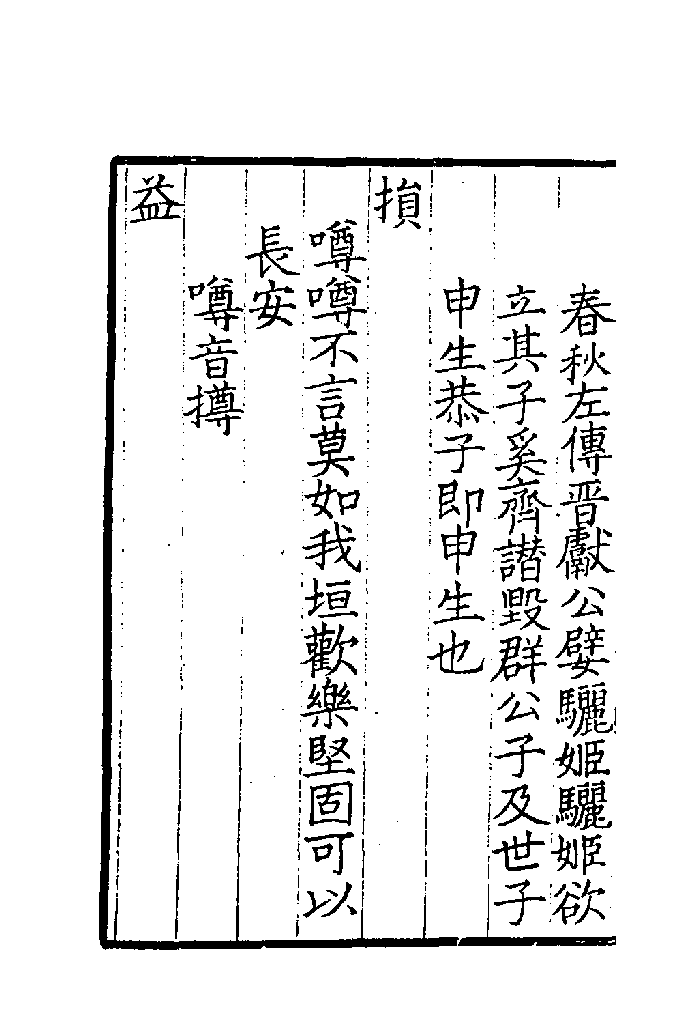 春秋左傳晋獻公嬖驪姬驪姬欲
立其子奚齊譖毀群公子及世子
申生恭子即申生也
損
噂噂不言莫如我垣歡樂堅固可以
長安
噂音撙
益